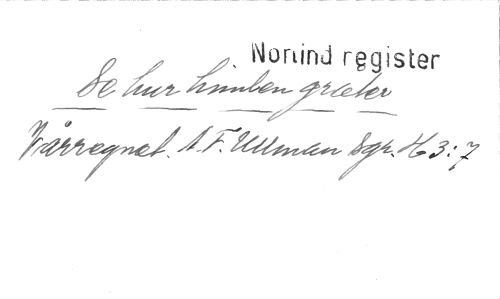 Nonind register
Se hur himlen gråter
Vårregnet. A. F. Ullman Sgr. H 3:7